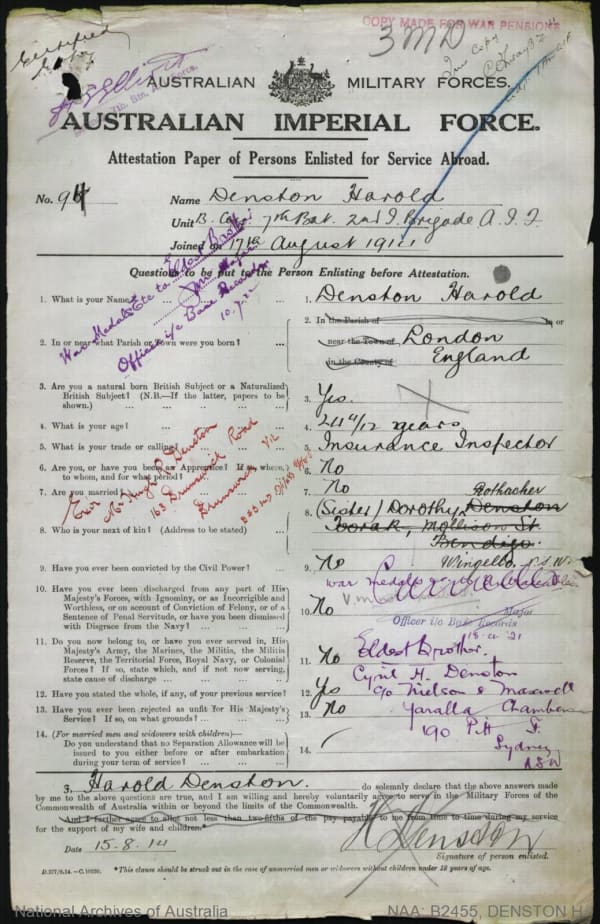 Certified
Copy
COPY MADE FOR WAR PENSIONS
3 MD
True Copy
7th Btn. A.I. Force.
AUSTRALIAN MILITARY FORCES.
AUSTRALIAN IMPERIAL FORCE.
Attestation Paper of Persons Enlisted for Service Abroad.
No. 94 Name Denston Harold
Unit B. Coy. 7th Bat. 2nd I. Brigade A.I.F
Joined on 17th August 1914
Questions to be put to the Person Enlisting before Attestation.
War Medals Etc to Eldest Brother
Major
Officer i/c Base Records
10.7.22
1. What is your Name? 1. Denston Harold
2. In or near what Parish or Town were you born? 2. In the Parish of in or
near the Town of London
in the County of England
3. Are you a natural born British Subject or a Naturalized British Subject? (N.B.—If the latter, papers to be shown.) 3. Yes.
4. What is your age? 4. 24 11/12 years
5. What is your trade or calling? 5. Insurance Inspector
6. Are you, or have you been an Apprentice? If so, where, to whom, and for what period? 6. No
7. Are you married? 7. No
Mr Hugh R. Denston
163 Brunswick Road
Brunswick Vic
8. Who is your next of kin? (Address to be stated) 8. (Sister) Dorothy Denston Rothacher
Toorak, Mollison St.
Bendigo.
Wingello, N.S.W.
9. Have you ever been convicted by the Civil Power? 9. No
10. Have you ever been discharged from any part of His Majesty's Forces, with Ignominy, or as Incorrigible and Worthless, or on account of Conviction of Felony, or of a Sentence of Penal Servitude, or have you been dismissed with Disgrace from the Navy? 10. No
war medals
Major
Officer i/c Base Records
18.4.21
11. Do you now belong to, or have you ever served in, His Majesty's Army, the Marines, the Militia, the Militia Reserve, the Territorial Force, Royal Navy, or Colonial Forces? If so, state which, and if not now serving, state cause of discharge 11. No
Eldest brother.
Cyril H. Denston
c/o Nielson & Maxwell
Yaralla Chambers
190 Pitt St.
Sydney
N.S.W
12. Have you stated the whole, if any, of your previous service? 12. Yes
13. Have you ever been rejected as unfit for His Majesty's Service? If so, on what grounds? 13. No
14. (For married men and widowers with children)—
Do you understand that no Separation Allowance will be issued to you either before or after embarkation during your term of service? 14.
I, Harold Denston. do solemnly declare that the above answers made
by me to the above questions are true, and I am willing and hereby voluntarily agree to serve in the Military Forces of the
Commonwealth of Australia within or beyond the limits of the Commonwealth.
And I further agree to allot not less than two-fifths of the pay payable to me from time to time during my service
for the support of my wife and children.*
H Denston
Date 15.8.14 Signature of person enlisted.
D.277/8.14.—C.10230. *This clause should be struck out in the case of unmarried men or widowers without children under 18 years of age.
National Archives of Australia NAA: B2455, DENSTON H